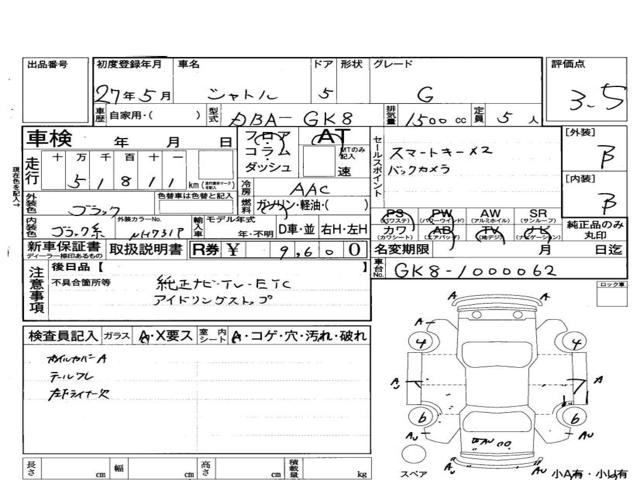 出品番号 初度登録年月 車名 ドア 形状 グレード 評価点
27年5月 シャトル 5 G 3.5
車歴 自家用・( ) 型式 DBA-GK8 排気量 1500cc 定員 5人
車検 年 月 日 フロア AT セールスポイント [外装]
コラム MTのみ記入 スマートキー×2 B
走行 十 万 千 百 十 一 ダッシュ 速 バックカメラ [内装]
5 1 8 1 1 km 冷房 AAC B
外装色 ブラック 色替車は色替と記入 燃料 ガソリン・軽油・( )
PS PW AW SR 純正品のみ丸印
(パワステ) (パワーウインド) (アルミホイル) (サンルーフ)
内装色 ブラック系 外装カラーNo. NH731P 輸入車 モデル年式 年・不明 D車・並 右H・左H カワ AB TV ナビ
(カワシート) (エアバッグ) (地デジ) (ナビゲーション)
新車保証書 取扱説明書 R券 ¥ 9,600 名変期限 月 日迄
ディーラー捺印あるもの
車台No. GK8-1000062
注意事項 後日品【 】
不具合箇所等 純正ナビ・TV・ETC
アイドリングストップ
ロック車
検査員記入 ガラス A・X要ス 室内シート A・コゲ・穴・汚れ・破れ
ホイルカバーA
テールワレ
A
4 4
A A
7
6 6
AU AU
AU
スペア 小A有・小U有
長さ cm 幅 cm 高さ cm 積載量 kg
現在色を記入→